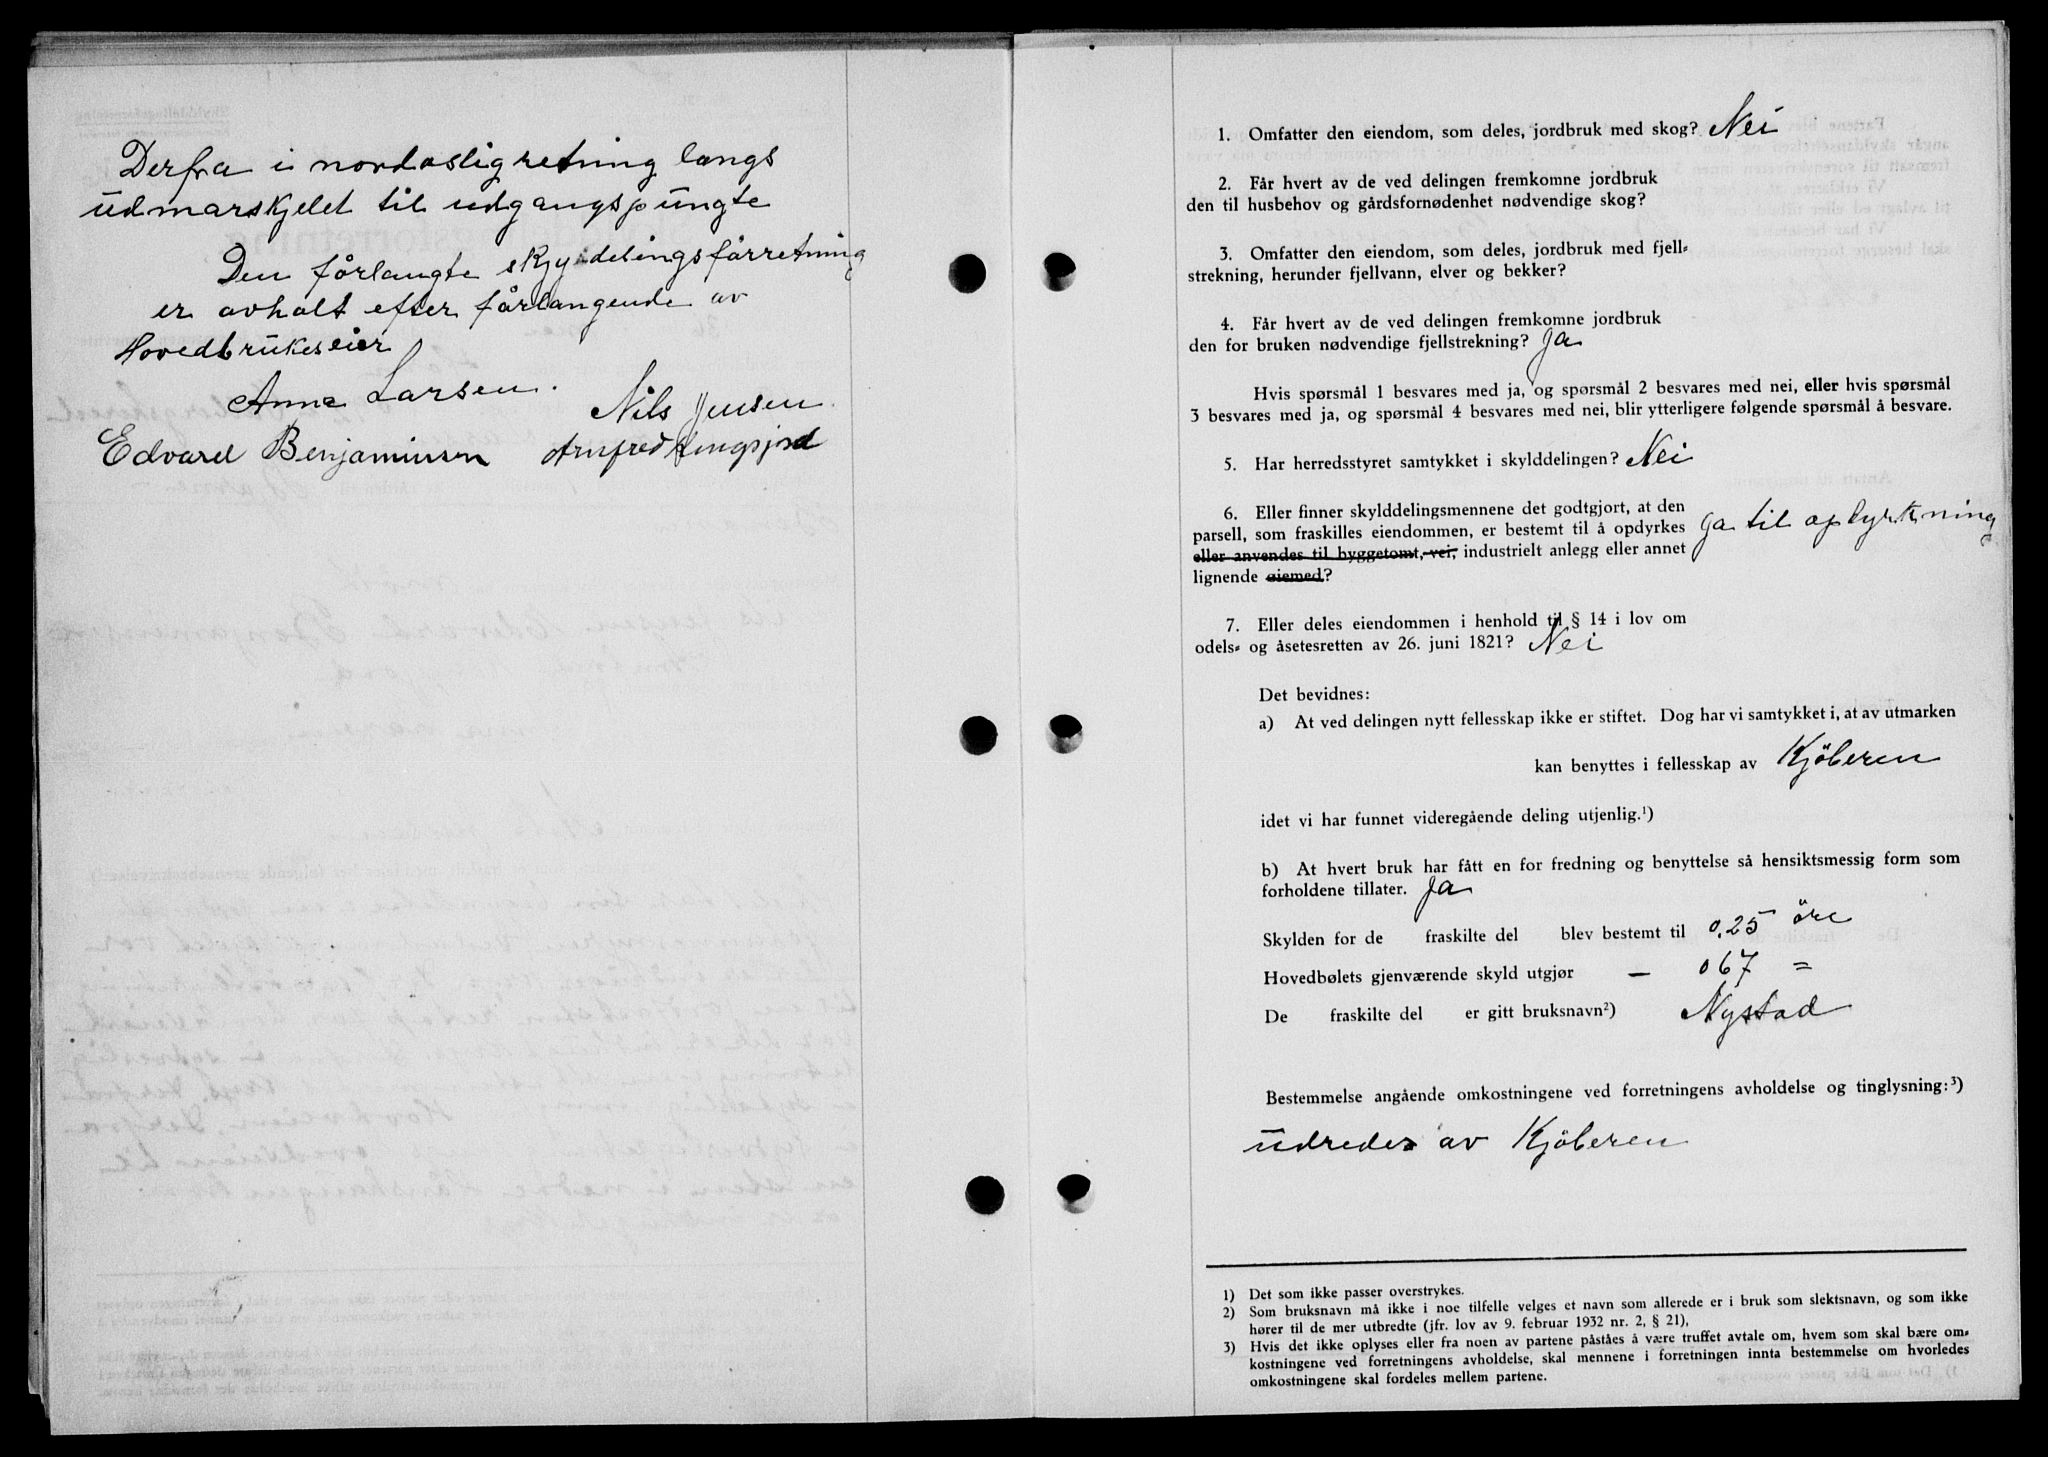 Derfra i nordøsligretning langs
udmarskjelet til udgangspungte
Den fårlangte skyldelingsfårretning
er avholt efter fårlangende av
Hovedbrukeseier
Anna Larsen. Nils Jensen.
Edvard Benjaminsen Arnfred Lyngsjord
1. Omfatter den eiendom, som deles, jordbruk med skog? Nei
2. Får hvert av de ved delingen fremkomne jordbruk
den til husbehov og gårdsfornødenhet nødvendige skog?
3. Omfatter den eiendom, som deles, jordbruk med fjell-
strekning, herunder fjellvann, elver og bekker?
4. Får hvert av de ved delingen fremkomne jordbruk
den for bruken nødvendige fjellstrekning? Ja
Hvis spørsmål 1 besvares med ja, og spørsmål 2 besvares med nei, eller hvis spørsmål
3 besvares med ja, og spørsmål 4 besvares med nei, blir ytterligere følgende spørsmål å besvare.
5. Har herredsstyret samtykket i skylddelingen? Nei
6. Eller finner skylddelingsmennene det godtgjort, at den
parsell, som fraskilles eiendommen, er bestemt til å opdyrkes ja til oplyrkning
eller anvendes til byggetomt, vei, industrielt anlegg eller annet
lignende øiemed?
7. Eller deles eiendommen i henhold til § 14 i lov om
odels- og åsetesretten av 26. juni 1821? Nei
Det bevidnes:
a) At ved delingen nytt fellesskap ikke er stiftet. Dog har vi samtykket i, at av utmarken
kan benyttes i fellesskap av Kjöberen
idet vi har funnet videregående deling utjenlig.¹)
b) At hvert bruk har fått en for fredning og benyttelse så hensiktsmessig form som
forholdene tillater. Ja
Skylden for de fraskilte del blev bestemt til 0,25 öre
Hovedbølets gjenværende skyld utgjør — 067 =
De fraskilte del er gitt bruksnavn²) Nystad
Bestemmelse angående omkostningene ved forretningens avholdelse og tinglysning:³)
udredes av Kjöberen
1) Det som ikke passer overstrykes.
2) Som bruksnavn må ikke i noe tilfelle velges et navn som allerede er i bruk som slektsnavn, og som ikke
hører til de mer utbredte (jfr. lov av 9. februar 1932 nr. 2, § 21),
3) Hvis det ikke oplyses eller fra noen av partene påståes å være truffet avtale om, hvem som skal bære om-
kostningene ved forretningens avholdelse, skal mennene i forretningen innta bestemmelse om hvorledes
omkostningene skal fordeles mellem partene.